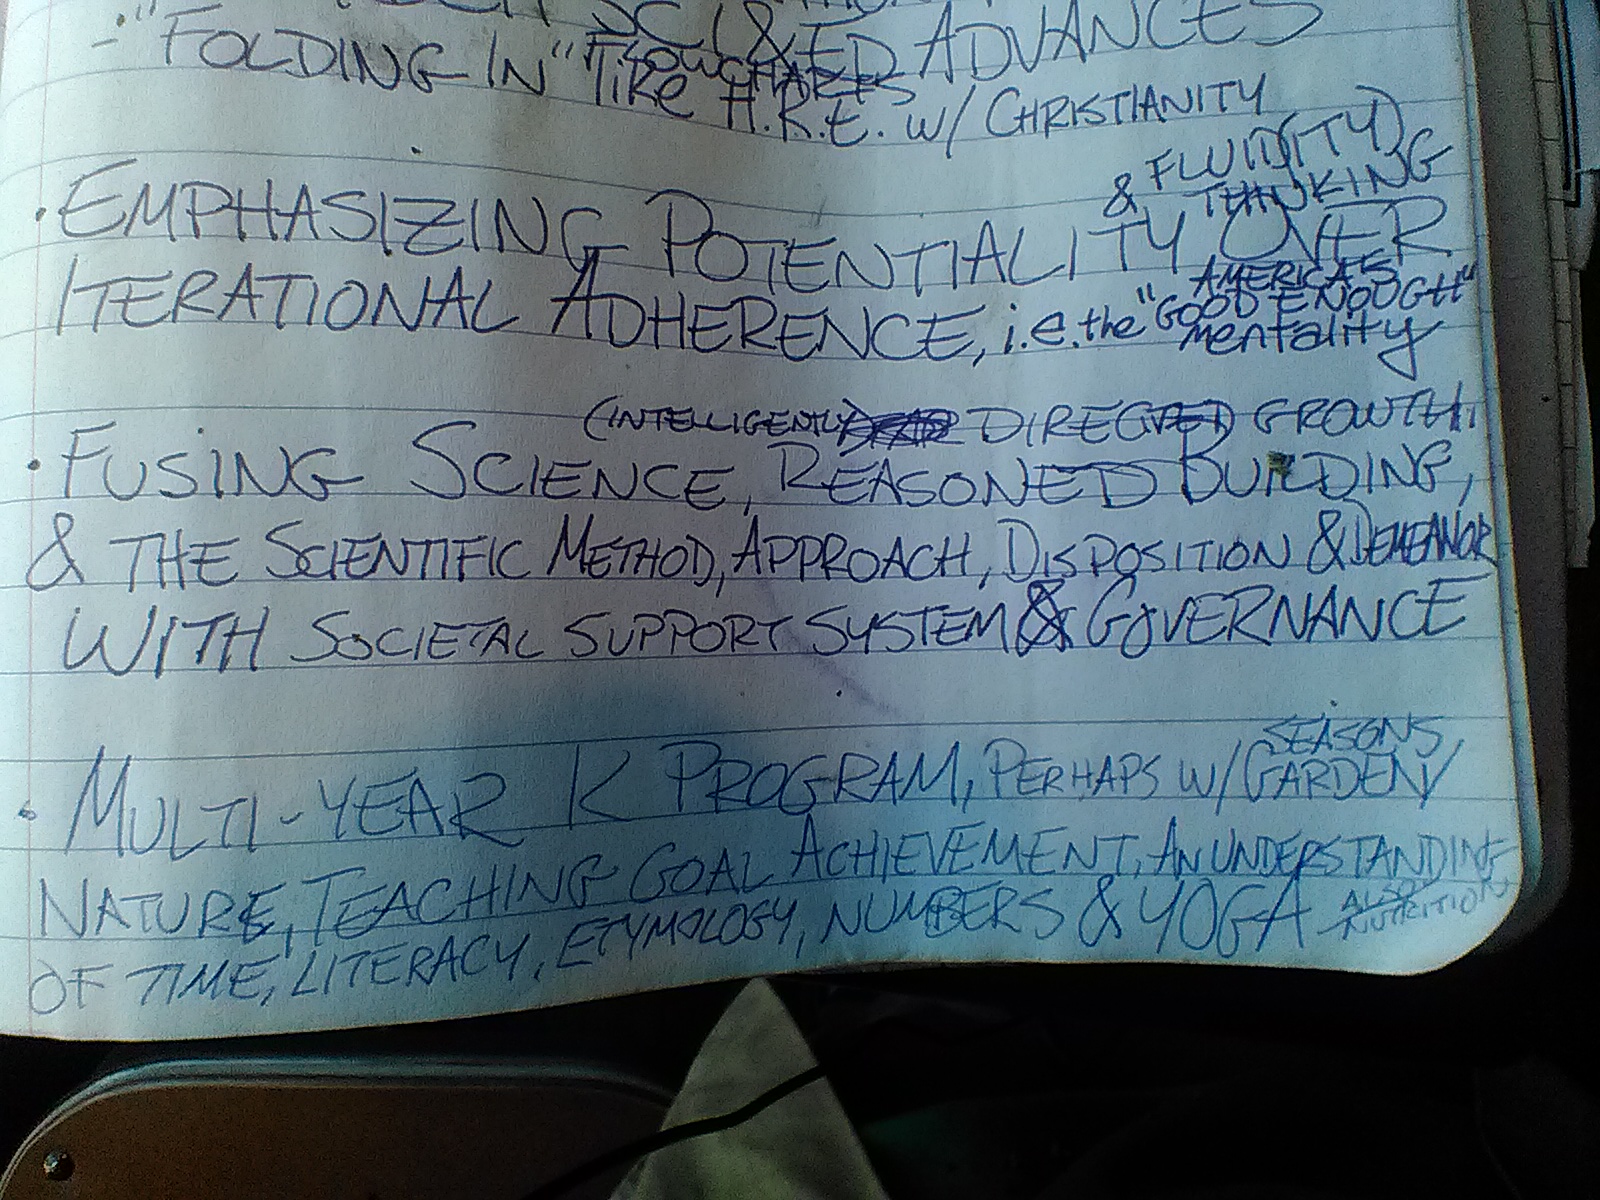 SCI & ED ADVANCES
- "FOLDING IN" FLOWCHARTS
like H.R.E. w/ CHRISTIANITY
& FLUID(ITY)
THINKING
• EMPHASIZING POTENTIALITY OVER
ITERATIONAL ADHERENCE, i.e. the AMERICA'S "GOOD ENOUGH"
mentality
(INTELLIGENTLY DIRECTED) GROWTH,
• FUSING SCIENCE, REASONED BUILDING,
& THE SCIENTIFIC METHOD, APPROACH, DISPOSITION & DEMEANOR
WITH SOCIETAL SUPPORT SYSTEM & GOVERNANCE
SEASONS,
• MULTI-YEAR K PROGRAM, PERHAPS W/ GARDEN/
NATURE, TEACHING GOAL ACHIEVEMENT, AN UNDERSTANDING
OF TIME, LITERACY, ETYMOLOGY, NUMBERS & YOGA ALSO
NUTRITION